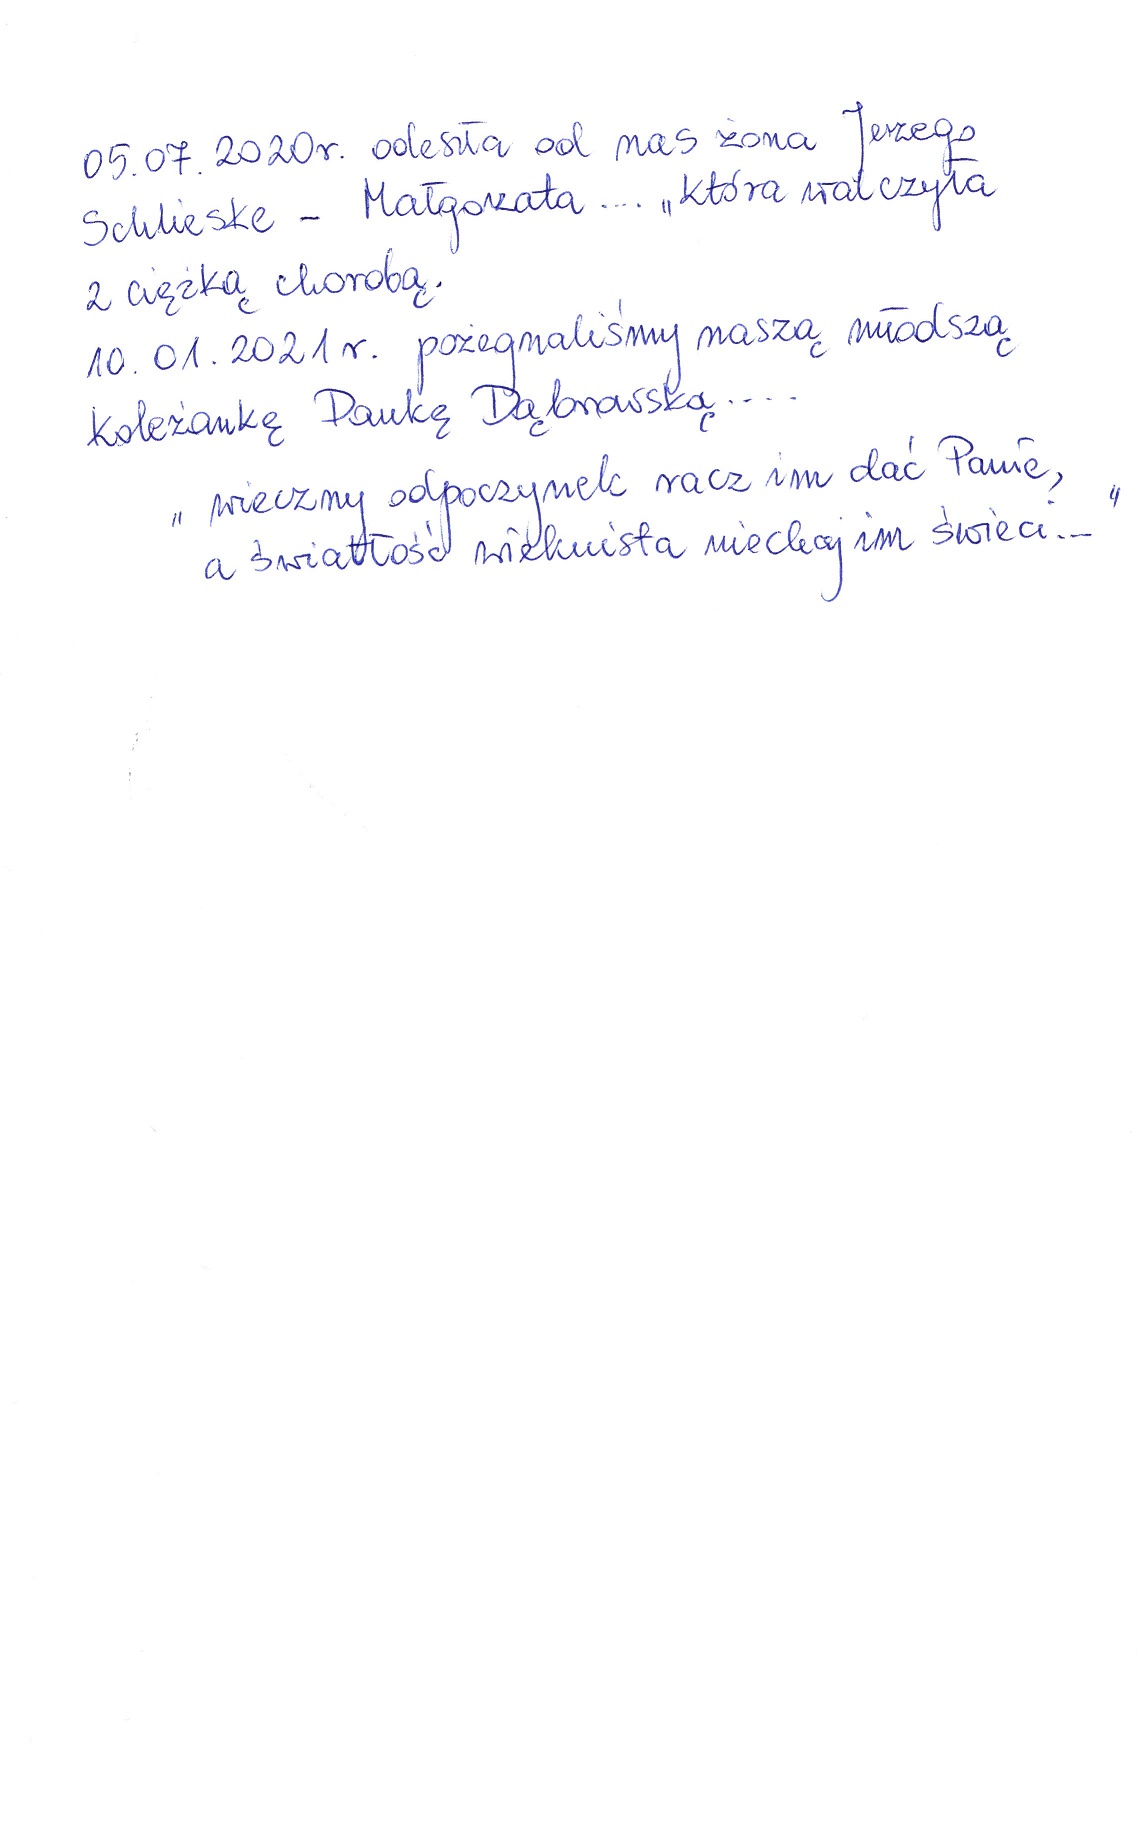 05.07.2020r. odeszła od nas żona Jerzego
Schlieske – Małgorzata .... „która walczyła
z ciężką chorobą.
10.01.2021r. pożegnaliśmy naszą młodszą
koleżankę Dankę Dąbrowską.....
„ wieczny odpoczynek racz im dać Panie,
a światłość wiekuista niechaj im świeci..– "